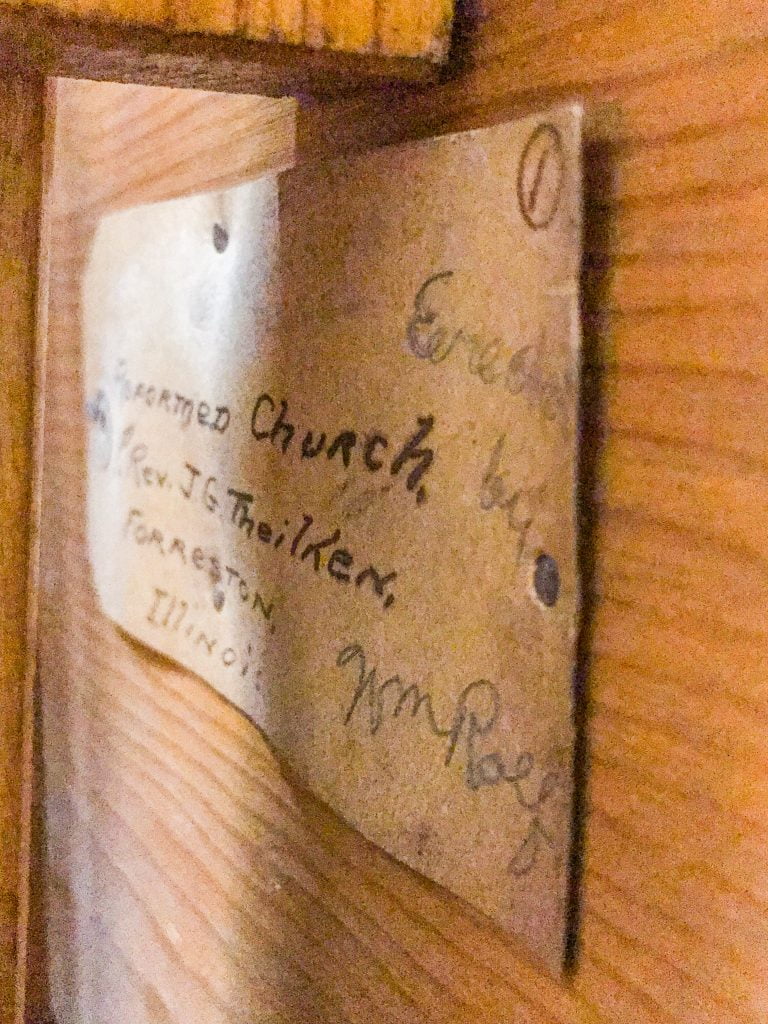 1
Reformed Church,
% Rev. J G. Theilken,
Forreston,
Illinois
Erected
by
Wm